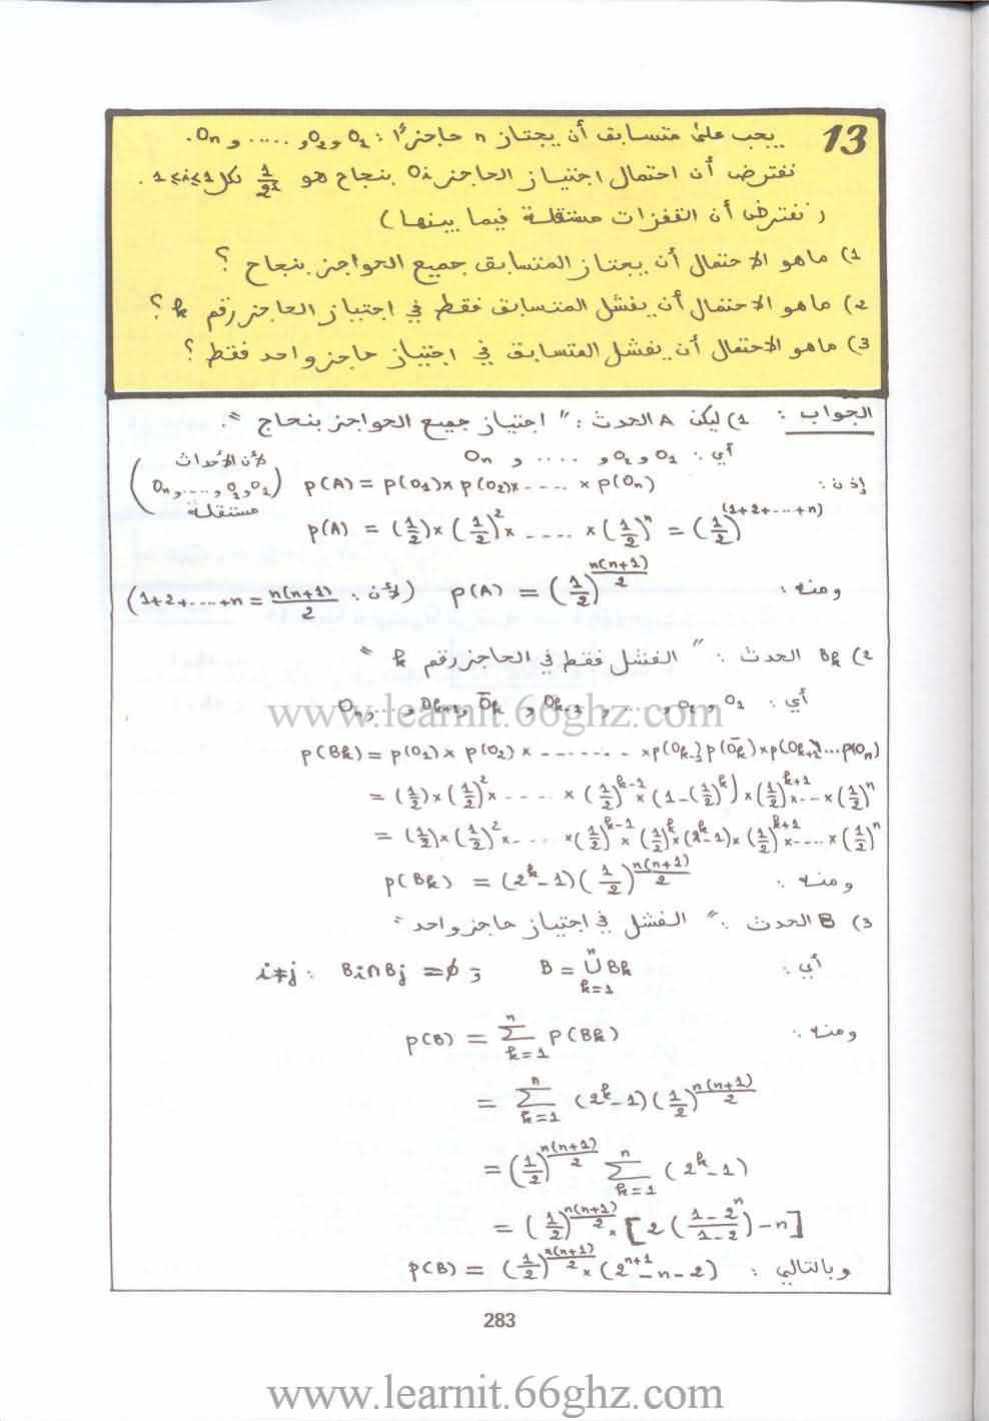 13 يجب على متسابق أن يجتاز n حاجزًا : O₁ و O₂, ..... و Oₙ.
نفترض أن احتمال اجتياز الحاجز Oᵢ بنجاح هو 1/2ⁱ لكل 1≤i≤1.
( نفترض أن القفزات مستقلة فيما بينها )
1) ماهو الاحتمال أن يجتاز المتسابق جميع الحواجز بنجاح ؟
2) ماهو الاحتمال أن يفشل المتسابق فقط في اجتياز الحاجز رقم k ؟
3) ماهو الاحتمال أن يفشل المتسابق في اجتياز حاجز واحد فقط ؟
الجواب : 1) ليكن A الحدث : " اجتياز جميع الحواجز بنجاح ".
أي : O₁ و O₂, .... و Oₙ
إذن : p(A) = p(O₁)× p(O₂)×.... × p(Oₙ) (لأن الأحداث O₁ و O₂,....و Oₙ مستقلة)
p(A) = (1/2)×(1/2)²×.... ×(1/2)ⁿ = (1/2)^(1+2+...+n)
ومنه : p(A) = (1/2)^(n(n+1)/2) (لأن : 1+2+....+n = n(n+1)/2)
2) Bk الحدث : " الفشل فقط في الحاجز رقم k "
أي : O₁ و O₂, ...., Ok-1 و Ōk و Ok+1, ..., Oₙ
www.learnit.66ghz.com
p(Bk) = p(O₁)× p(O₂) × ....... ×p(Ok-1) p(Ōk)×p(Ok+1)...p(Oₙ)
= (1/2)×(1/2)²×.... × (1/2)^(k-1)×(1-(1/2)^k)×(1/2)^(k+1)×...×(1/2)ⁿ
= (1/2)×(1/2)²×.... ×(1/2)^(k-1)×(1/2)^k×(2^k-1)×(1/2)^(k+1)×....×(1/2)ⁿ
ومنه : p(Bk) = (2^k-1)(1/2)^(n(n+1)/2)
3) B الحدث : " الفشل في اجتياز حاجز واحد "
أي : B = ⋃_(k=1)^n Bk ; Bi∩Bj = ∅ : i≠j
ومنه : p(B) = Σ_(k=1)^n p(Bk)
= Σ_(k=1)^n (2^k-1)(1/2)^(n(n+1)/2)
= (1/2)^(n(n+1)/2) Σ_(k=1)^n (2^k-1)
= (1/2)^(n(n+1)/2) × [2((1-2ⁿ)/(1-2))-n]
وبالتالي : p(B) = (1/2)^(n(n+1)/2) × (2^(n+1)-n-2)
283
www.learnit.66ghz.com